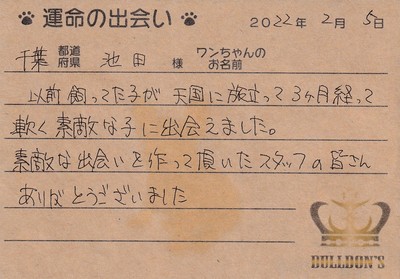 運命の出会い 2022年2月5日
千葉 都道府県 池田 様 ワンちゃんのお名前
以前飼ってた子が天国に旅立って3ヶ月経って
軟く素敵な子に出会えました。
素敵な出会いを作って頂いたスタッフの皆さん
ありがとうございました
BULLDON'S